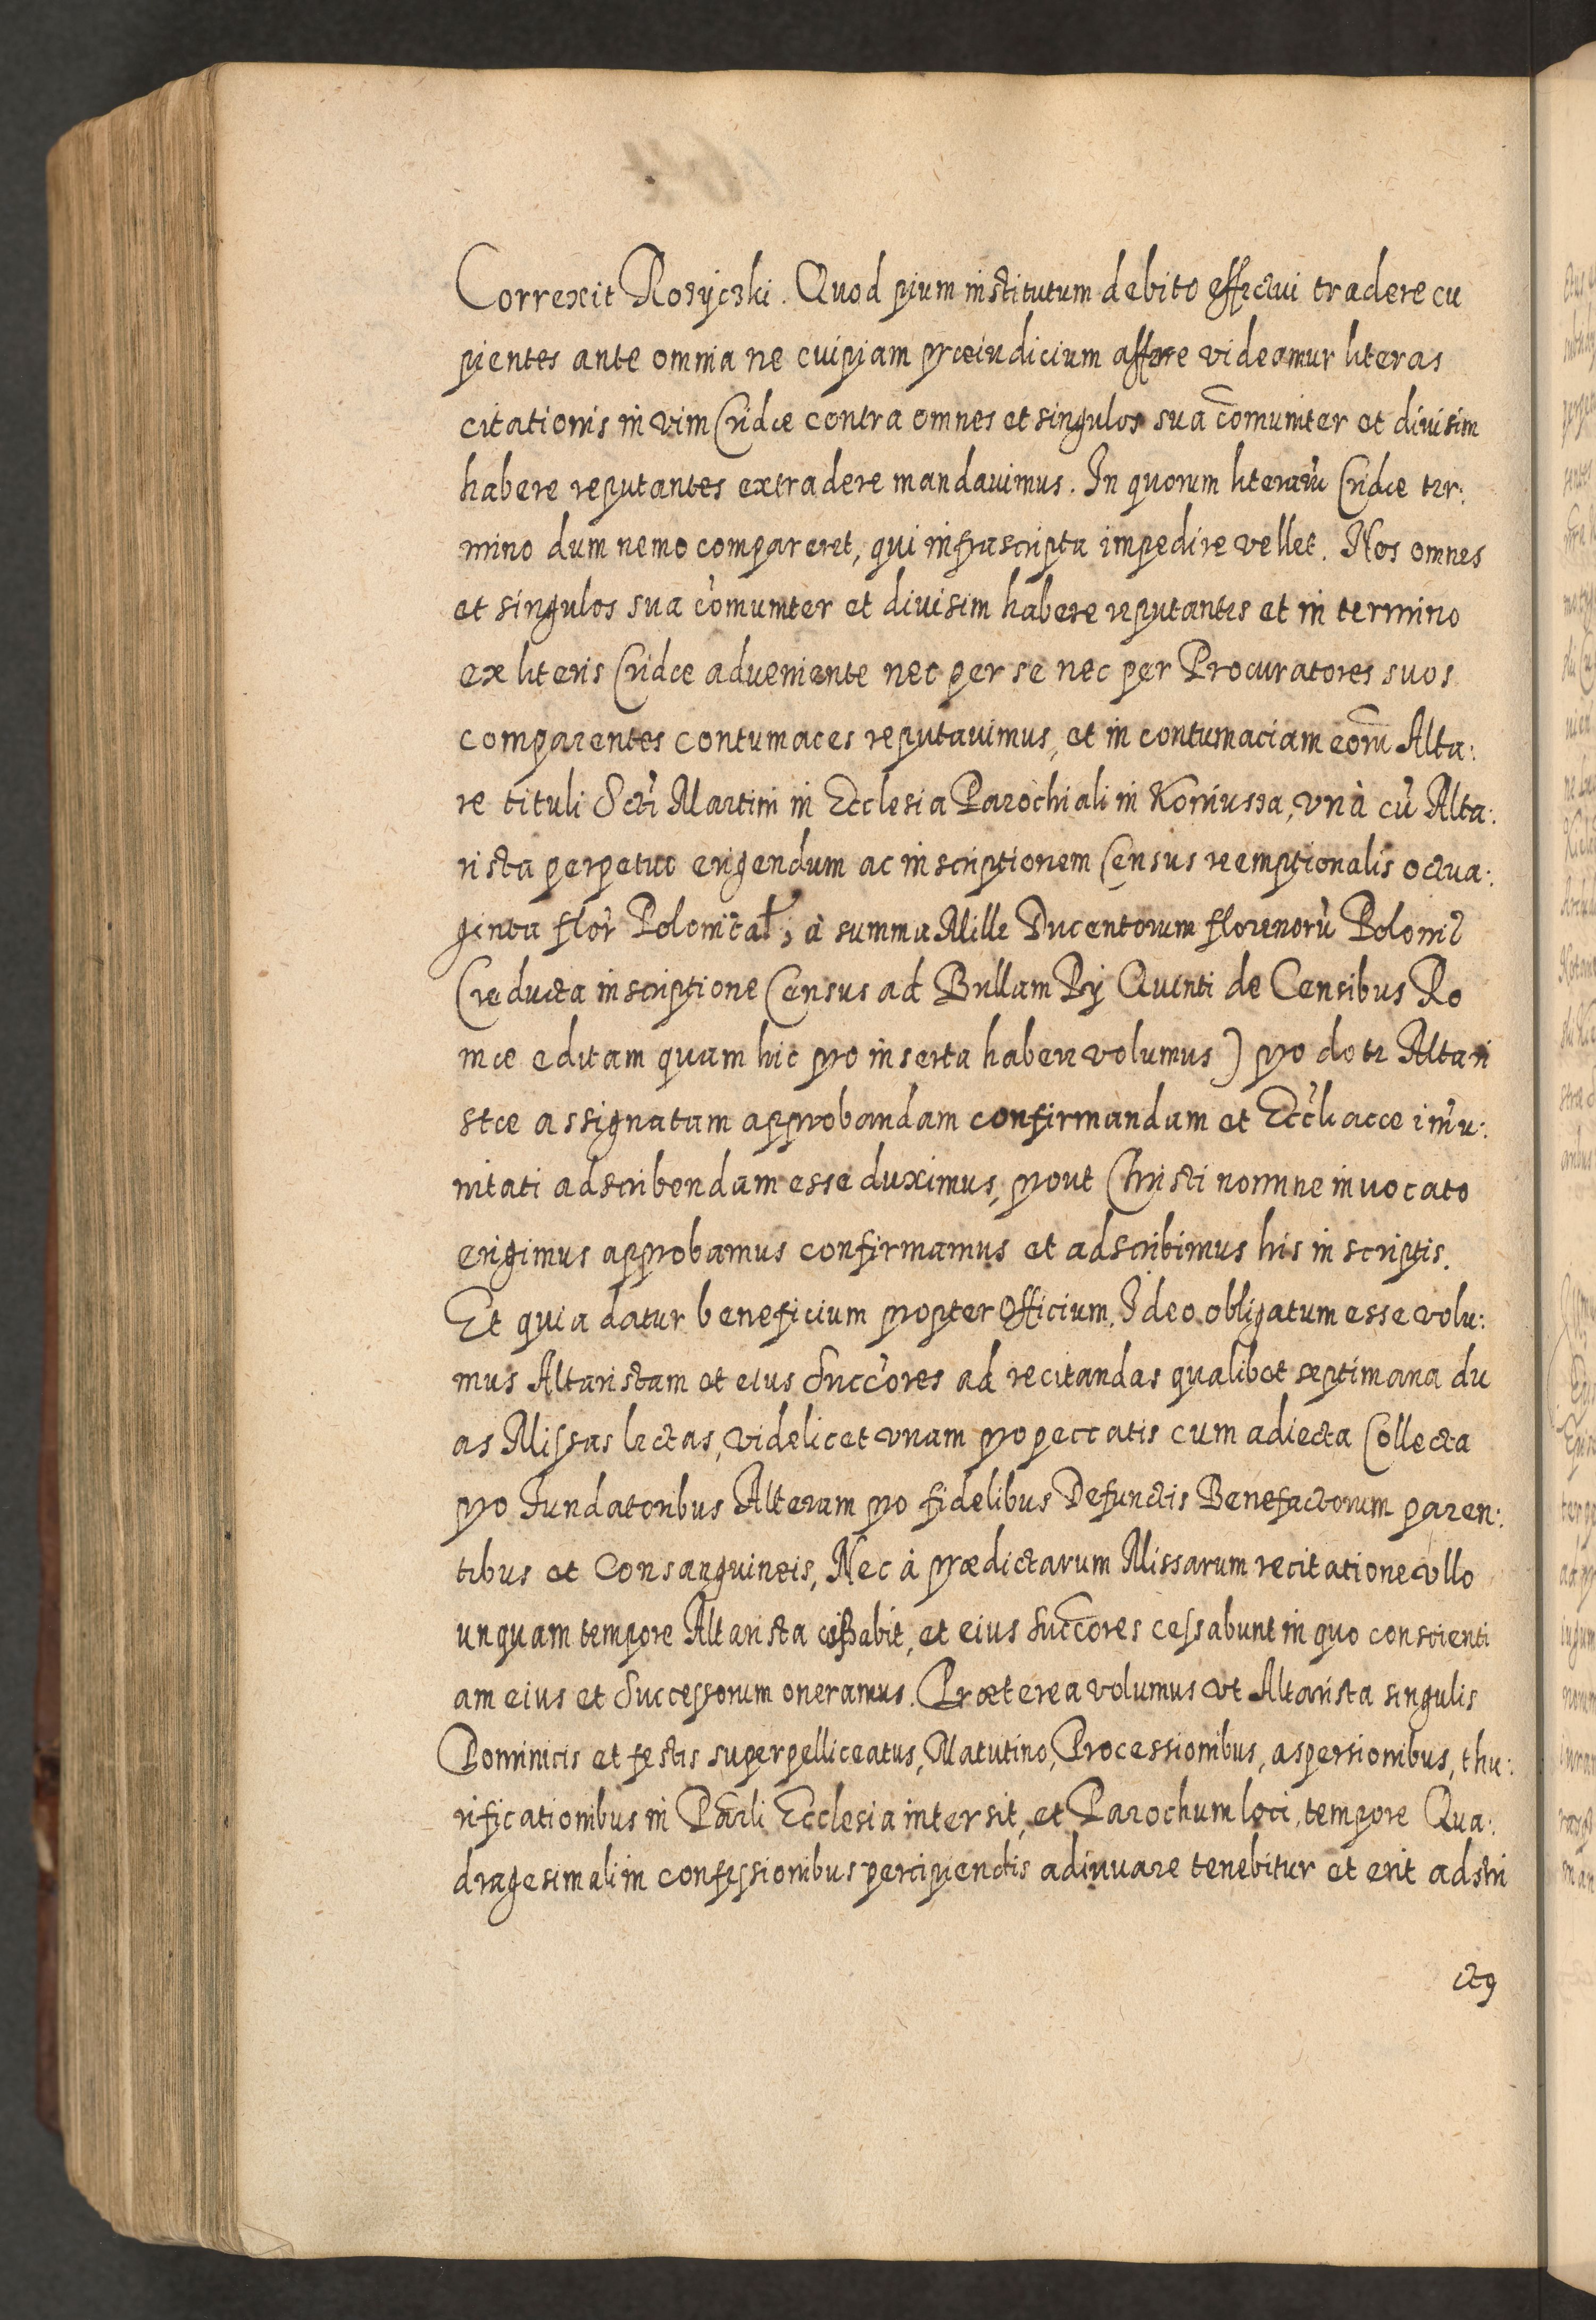 Correxit Rozyczki. Quod pium institutum debito effectui tradere cu
pientes ante omnia ne cuipiam præiudicium afferre videamur literas
citationis in vim Cridæ contra omnes et singulos sua com̄uniter et divisim
habere reputantes extradere mandavimus. In quorum literarū Cridæ ter:
mino dum nemo compareret, qui infrascripta impedire vellet. Nos omnes
et singulos sua com̄uniter et divisim habere reputantes et in termino
ex literis Cridæ adveniente nec per se nec per Procuratores suos
comparentes contumaces reputavimus, et in contumaciam eorū Alta:
re tituli Scti Martini in Ecclesia Parochiali in Koniusza, vnà cū Alta:
rista perpetuo erigendum ac inscriptionem Census reemptionalis octua:
ginta flor Polonical; à summa Mille Ducentorum florenorū Polonic
(reducta inscriptione Census ad Bullam Pij Quinti de Censibus Ro
mæ editam quam hic pro inserta habere volumus) pro dote Altari
stæ assignatam approbandam confirmandam et Eccliacæ im̄u:
nitati adscribendam esse duximus, prout Christi nomine invocato
erigimus approbamus confirmamus et adscribimus his in scriptis.
Et quia datur beneficium propter Officium. Ideo obligatum esse volu:
mus Altaristam et eius Succores ad recitandas qualibet septimana du
as Missas lectas, videlicet vnam pro peccatis cum adiecta Collecta
pro Fundatoribus Alteram pro fidelibus Defunctis Benefactorum paren:
tibus et Consanguineis, Nec à prædictarum Missarum recitatione vllo
unquam tempore Altarista cessabit, et eius Succores cessabunt in quo conscienti
am eius et Successorum oneramus. Præterea volumus vt Altarista singulis
Dominicis et festis superpelliceatus, Matutino, Processionibus, aspersionibus, thu:
rificationibus in Parli Ecclesia intersit, et Parochum loci, tempore Qua:
dragesimali in confessionibus percipiendis adiuvare tenebitur et erit adstri
ctus